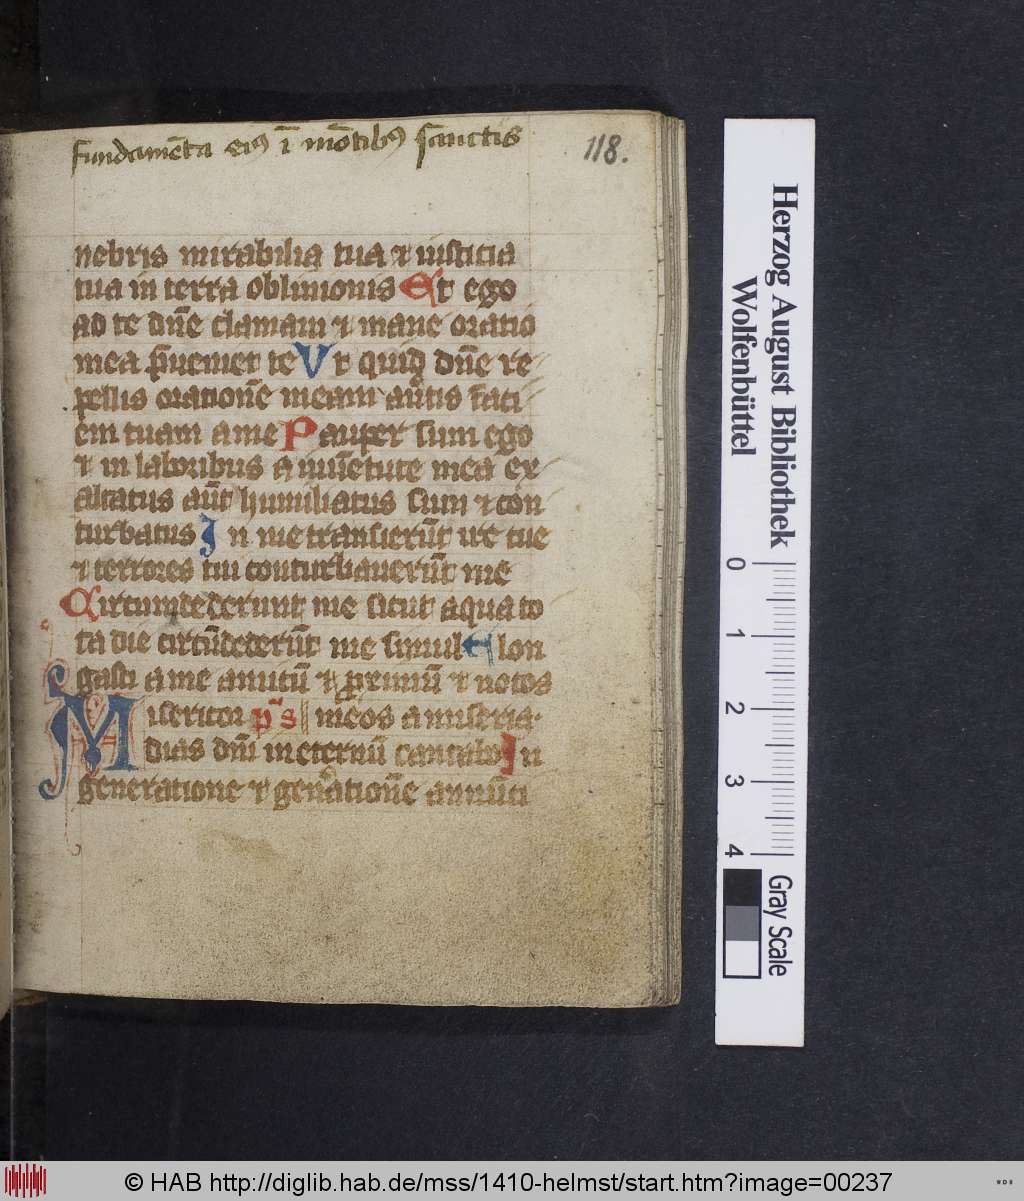 fundamēta eiꝰ ī mōtibꝰ sanctis
118.
nebris mirabilia tua ⁊ iusticia
tua in terra obliuionis Et ego
ad te dn̄e clamaui ⁊ mane oratio
mea p̄ueniet te Vt quid dn̄e re
pellis orationē meam au̾tis faci
em tuam a me Pauper sum ego
⁊ in laboribus a iuuētute mea ex
altatus aūt humiliatus sum ⁊ con
turbatus In me transierūt ire tue
⁊ terrores tui conturbauerūt me
Circumdederunt me sicut aqua to
ta die circūdederūt me simul Elon
gasti a me amicū ⁊ proximū ⁊ notos
Misericor ps meos a miseria.
dias dn̄i in eternū cantabo In
generatione ⁊ gen̾ationē annūci
Herzog August Bibliothek
Wolfenbüttel
0 1 2 3 4
Gray Scale
© HAB http://diglib.hab.de/mss/1410-helmst/start.htm?image=00237